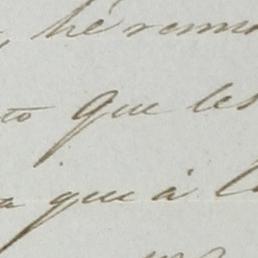 , hé remo
to que les
a que á l